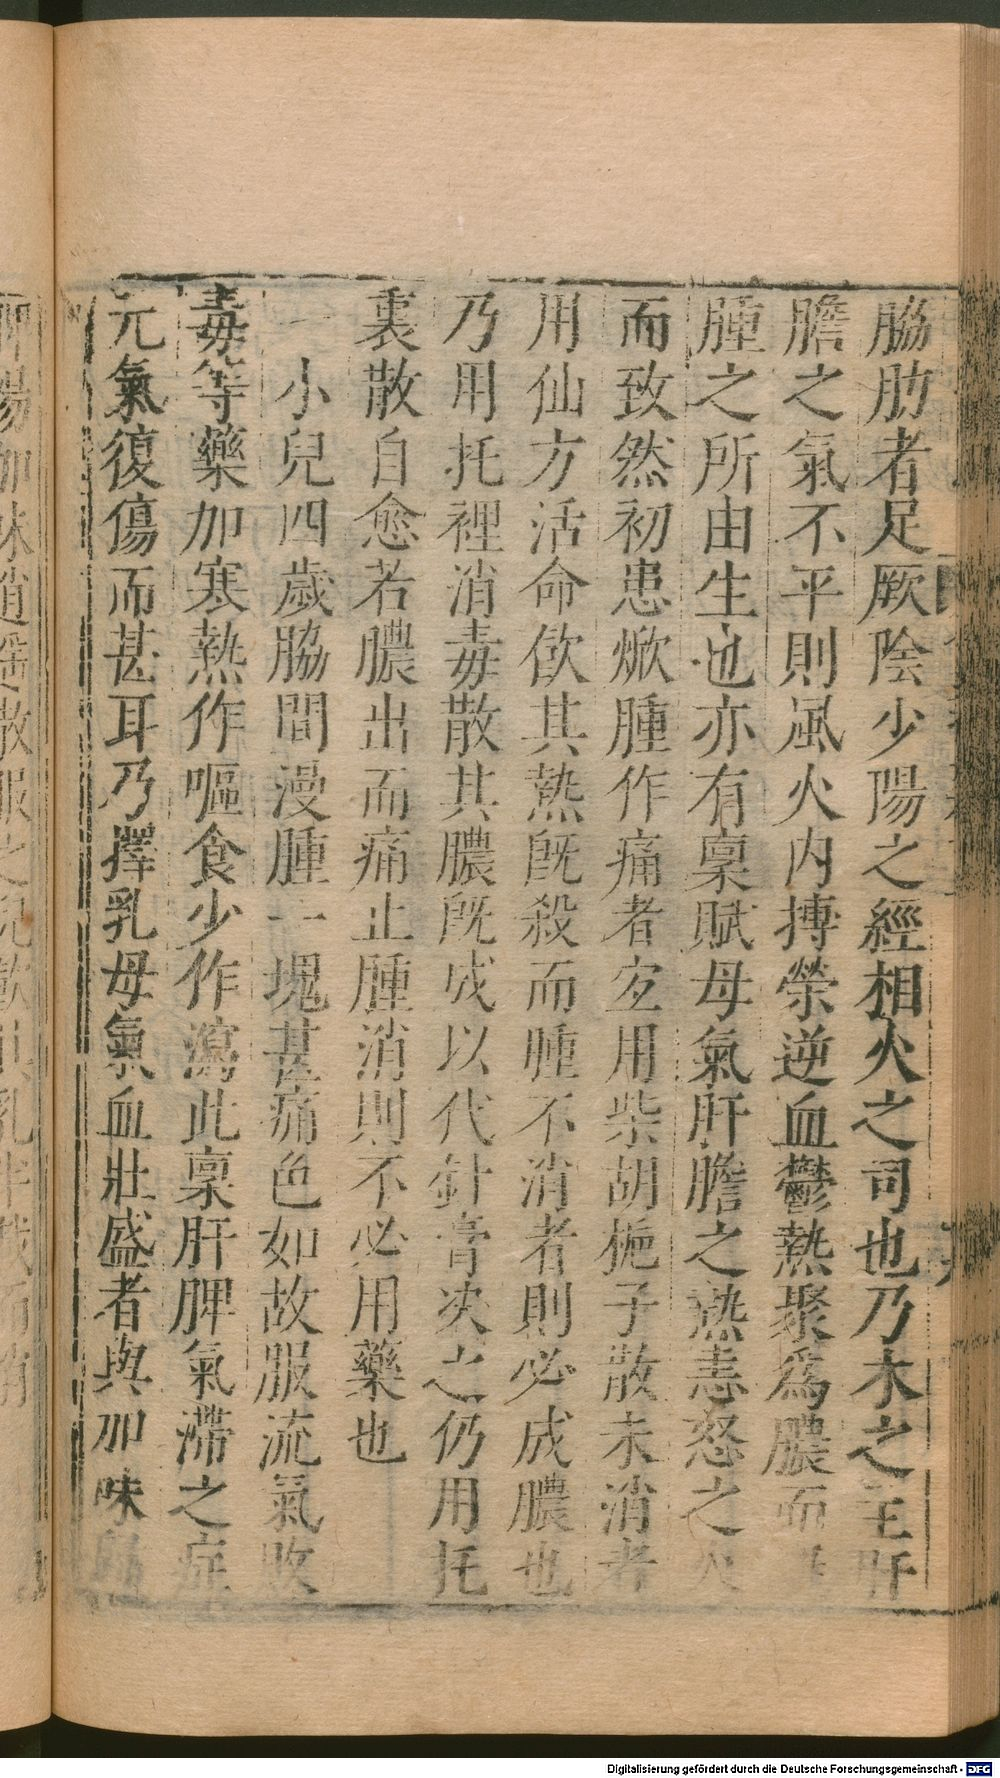 脇肋者足厥陰少陽之經相火之司也乃木之主肝
膽之氣不平則風火内搏榮逆血鬱熱聚爲膿而
腫之所由生也亦有稟賦母氣肝膽之熱恚怒之火
而致然初患焮腫作痛者宐用柴胡梔子散未消者
用仙方活命飲其熱既殺而腫不消者則必成膿也
乃用托裡消毒散其膿既成以代針膏决之仍用托
裏散自愈若膿出而痛止腫消則不必用藥也
一小兒四歲脇間漫腫一塊甚痛色如故服流氣敗
毒等藥加寒熱作嘔食少作瀉此稟肝脾氣滯之症
元氣復傷而甚耳乃擇乳母氣血壯盛者與加味
Digitalisierung gefördert durch die Deutsche Forschungsgemeinschaft - DFG